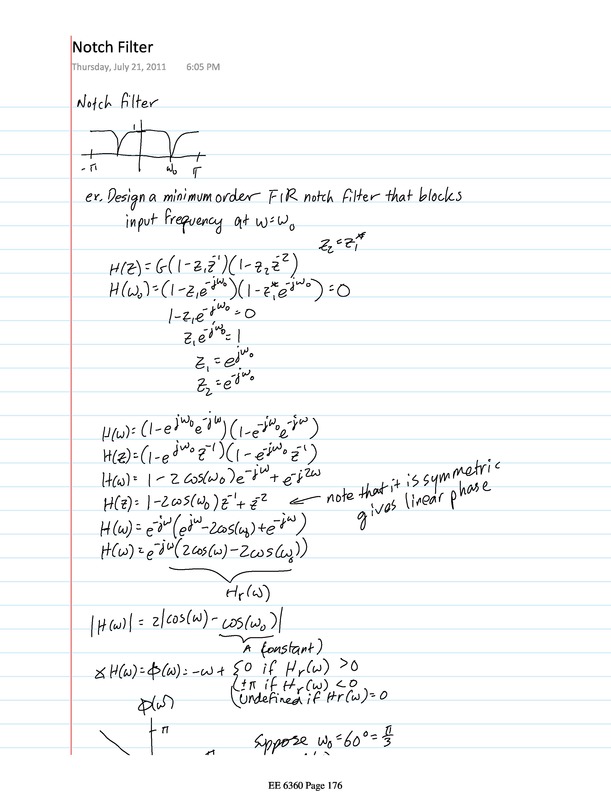 Notch Filter
Thursday, July 21, 2011 6:05 PM
Notch filter
1
-π ω₀ π
ex. Design a minimum order FIR notch filter that blocks
input frequency at ω=ω₀
z₂=z₁*
H(z)=G(1-z₁z⁻¹)(1-z₂z⁻²)
H(ω₀)=(1-z₁e^-jω₀)(1-z₁*e^-jω₀)=0
1-z₁e^-jω₀=0
z₁e^-jω₀=1
z₁=e^jω₀
z₂=e^-jω₀
H(ω)=(1-e^jω₀e^-jω)(1-e^-jω₀e^-jω)
H(z)=(1-e^jω₀z⁻¹)(1-e^-jω₀z⁻¹)
H(ω)=1-2cos(ω₀)e^-jω+e^-j2ω
H(z)=1-2cos(ω₀)z⁻¹+z⁻² ← note that it is symmetric
gives linear phase
H(ω)=e^-jω(e^jω-2cos(ω₀)+e^-jω)
H(ω)=e^-jω(2cos(ω)-2cos(ω₀))
Hr(ω)
|H(ω)|=2|cos(ω)-cos(ω₀)|
A constant)
∡H(ω)=ϕ(ω)=-ω+{0 if Hr(ω)>0
±π if Hr(ω)<0
(undefined if Hr(ω)=0
ϕ(ω)
π
Suppose ω₀=60°=π/3
EE 6360 Page 176